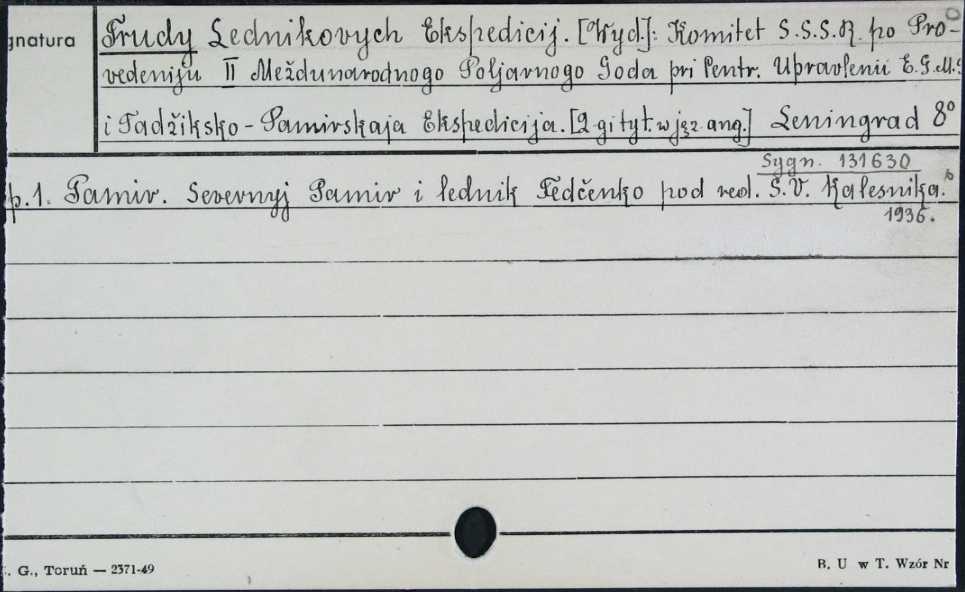 gnatura
Trudy Lednikovych Ekspedicij. [Wyd.]: Komitet S.S.S.R. po Pro-
vedeniju II Meždunarodnogo Poljarnogo Goda pri Centr. Upravlenii E.G.M.S
i Tadžiksko-Pamirskaja Ekspedicija. [2-gi tyt. w jęz. ang.] Leningrad 8º
Sygn. 131630
p.1. Pamir. Severnyj Pamir i lednik Fedčenko pod red. S.V. Kalesnika.
1936.
. G., Toruń — 2371-49
B. U w T. Wzór Nr